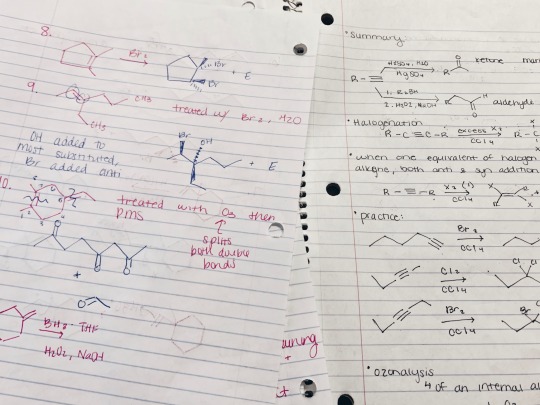 8.
Br₂
Br
Br
+ E
9.
CH₃
CH₃
treated w/ Br₂, H₂O
OH added to
most substituted,
Br added anti
Br
OH
+ E
treated with O₃ then
DMS
splits
both double
bonds
+
O
BH₃ · THF
H₂O₂, NaOH
• summary:
R
H₂SO₄, H₂O
HgSO₄
R
O
ketone
1. R₂BH
2. H₂O₂, NaOH
R
O
H
aldehyde
• Halogenation
R-C≡C-R
excess X₂
CCl₄
R-C-
• when one equivalent of halogen
both anti & syn addition
R-≡-R
X₂ (1)
CCl₄
• practice:
Br₂
CCl₄
Cl₂
CCl₄
Cl
Cl
Br₂
CCl₄
Br
• ozonalysis
of an internal